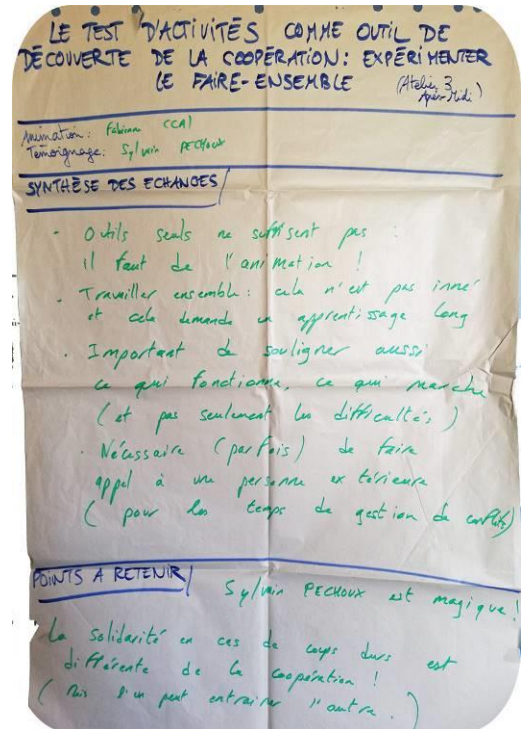 LE TEST D'ACTIVITÉS COMME OUTIL DE
DÉCOUVERTE DE LA COOPÉRATION: EXPÉRIMENTER
LE FAIRE-ENSEMBLE (Atelier 3
Après Midi)
Animation: CCAI
Témoignage: Sylvain PECHOUX
SYNTHÈSE DES ECHANGES
- Outils seuls ne suffisent pas :
il faut de l'animation !
- Travailler ensemble: cela n'est pas inné
et cela demande un apprentissage long
- Important de souligner aussi
ce qui fonctionne, ce qui marche
(et pas seulement les difficultés)
- Nécessaire (parfois) de faire
appel à une personne extérieure
(pour les temps de gestion de conflits)
POINTS A RETENIR
Sylvain PECHOUX est magique!
La solidarité en cas de coups durs est
différente de la coopération !
(Mais l'un peut entraîner l'autre.)